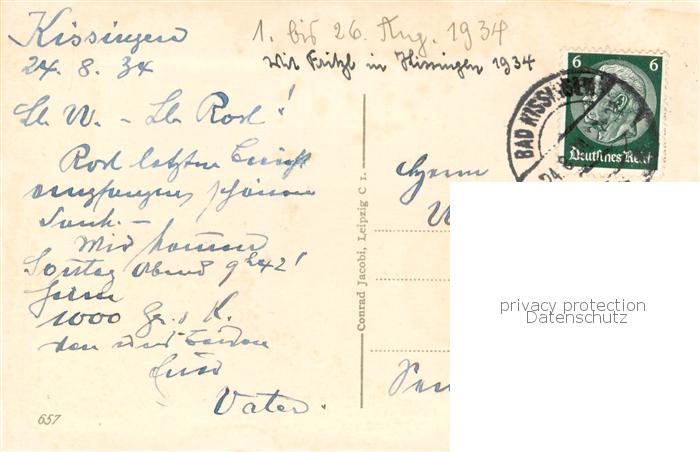 Kissingen
24. 8. 34
1. bis 26. Aug. 1934
Wir Fritzl in Kissingen 1934
6 6
Deutsches Reich
BAD KISSINGEN
24.
Lb. W. - Lb. Rosl!
Rosl letzten
empfangen, schönen
Dank. -
Wir kommen
Sonntag Abend 9h42!
heim
1000 Gr. u. K.
von und
Euer
Vater.
Herrn
Conrad Jacobi, Leipzig C 1.
657
privacy protection
Datenschutz